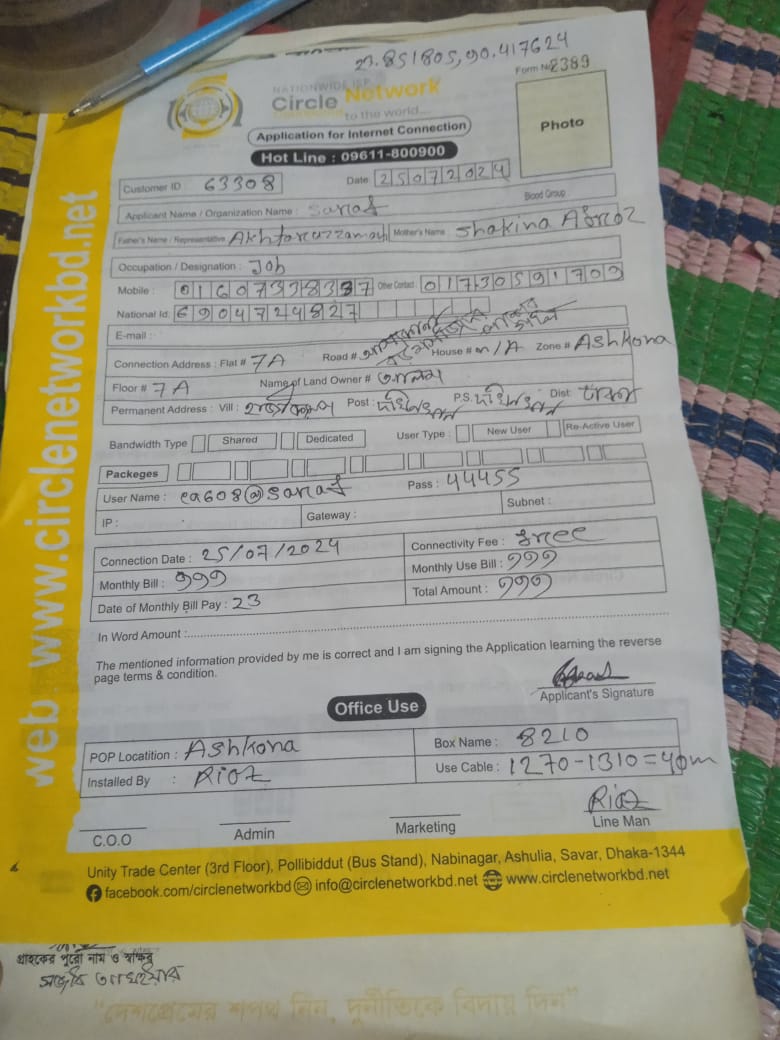 23.851805, 90.417624
Form No 2389
NATIONWIDE ISP
Circle Network
to the world...
Application for Internet Connection
Photo
Hot Line : 09611-800900
Customer ID : 63308
Date 25072024
Blood Group
Applicant Name / Organization Name :
Father's Name / Representative Mother's Name Shakina Afroz
Occupation / Designation : Job
Mobile : Other Contact 01730591703
National Id: 6904724827
E-mail :
Connection Address : Flat # 7A Road # House # n/A Zone # Ashkona
Floor # 7A Name of Land Owner #
Permanent Address : Vill : Post : P.S. Dist
Bandwidth Type Shared Dedicated User Type : New User Re-Active User
Packeges
User Name : Pass : 44455
IP : Gateway : Subnet :
Connection Date : 25/07/2024 Connectivity Fee : free
Monthly Bill : 999 Monthly Use Bill : 999
Date of Monthly Bill Pay : 23 Total Amount : 999
In Word Amount :
The mentioned information provided by me is correct and I am signing the Application learning the reverse
page terms & condition.
Applicant's Signature
Office Use
POP Locatition : Ashkona Box Name : 8210
Installed By : Riaz Use Cable : 1270-1310=40m
Riaz
C.O.O Admin Marketing Line Man
Unity Trade Center (3rd Floor), Pollibiddut (Bus Stand), Nabinagar, Ashulia, Savar, Dhaka-1344
facebook.com/circlenetworkbd info@circlenetworkbd.net www.circlenetworkbd.net
web : www.circlenetworkbd.net
গ্রাহকের পুরো নাম ও স্বাক্ষর
"দেশপ্রেমের শপথ নিন, দুর্নীতিকে বিদায় দিন"